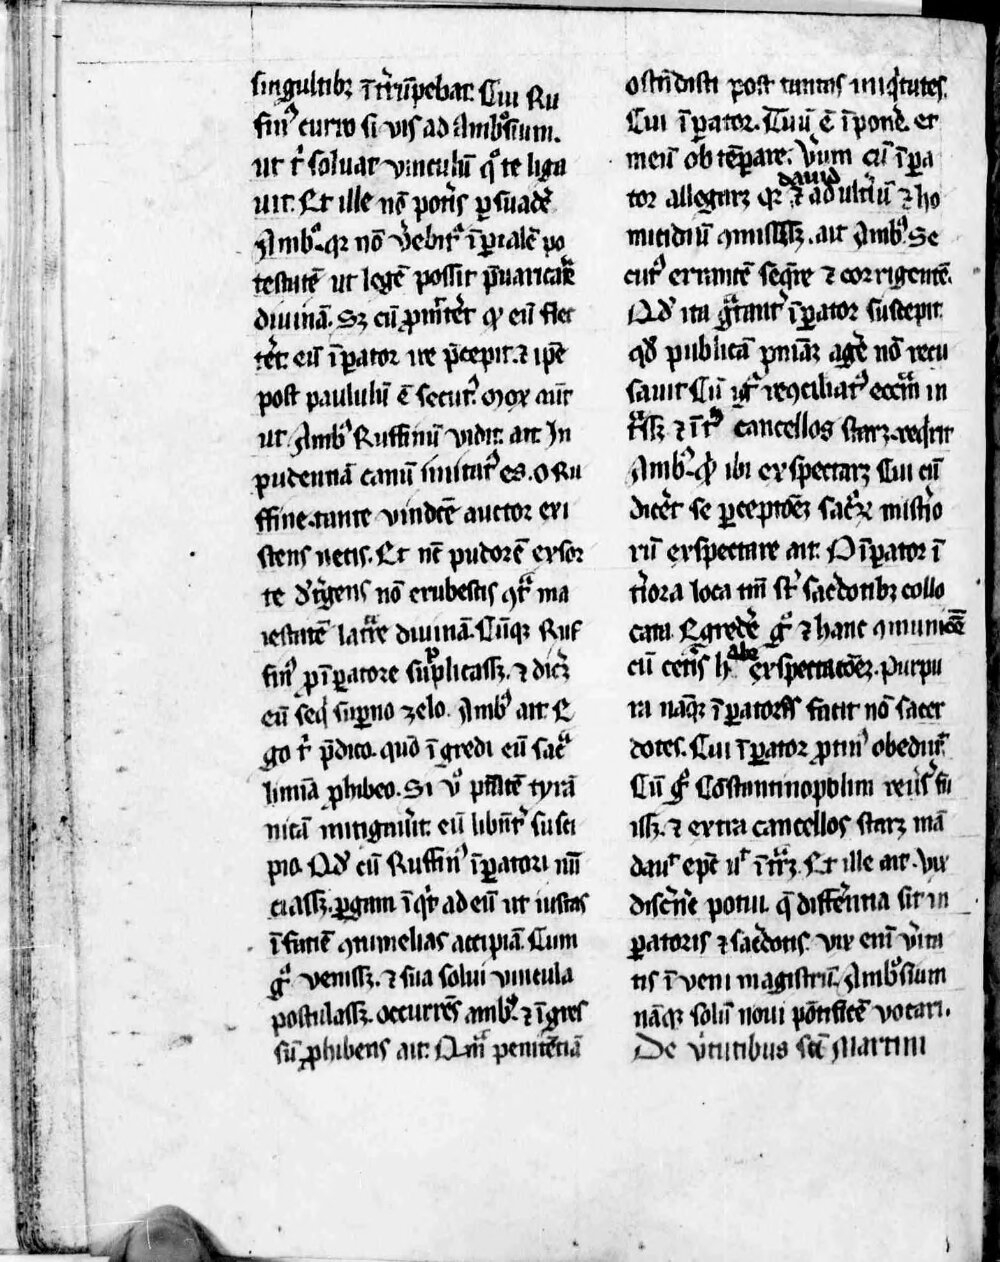 singultibꝫ īt̾rūpebat. Cui Ru
fin᷒ curro si vis ad Amb᷒sium.
ut t̾ soluat vinculū qͦ te liga
uit. Et ille nō pot̾is ꝑsuadē
Amb᷒. qꝛ nō v̾ebit᷒ īꝑialē po
testatē ut legē possit p̄uaricare
diuinā. Sꝫ cū ꝓmitt̾et ꝙ eū flec
t̾et. eū īꝑator ire p̄cepit. ⁊ ip̄e
post paululū ē secut᷒. Mox aūt
ut Amb᷒ Ruffinū vidit. ait. In
pudentiā canū imitat᷒ es. o Ru
ffine. tante vindcē auctor exi
stens necis. Et nē pudorē exsor
te d̾t̾gens nō erubescis ꝯtͣ ma
iestatē latrͣe diuinā. Cūqꝫ Ruf
fin᷒ ꝓ īꝑatore supplicassꝫ. ⁊ dic̾ꝫ
eū seq̄ suꝑno zelo. Amb᷒ ait. E
go t̾ p̄dico. quō īgredi eū sacͣ
limīa ꝓhibeo. Si v̊ ptātē tyrā
nicā mitigau̾it. eū libēt̾ susci
pio. Qd̾ cū Ruffin᷒ īꝑatori nū
ciassꝫ. ꝑgam īqͥt ad eū ut iustas
ī faciē ꝯtumelias accipiā. Cum
gͦ venissꝫ. ⁊ sua solui vincula
postulassꝫ. occurrēs amb᷒. ⁊ īgres
sū ꝓhibens ait. Qͣm penitētiā
ostēdisti post tantas iniq̾tates.
Cui īꝑator. Tuū ē īpone̾. et
meū obtēꝑare. V̾um cū īꝑa
tor allegarꝫ qꝛ ⁊ dauid adult̾iū ⁊ ho
micidiū ꝯmisissꝫ. ait Amb᷒. Se
cut᷒ errantē seq̾re ⁊ corrigentē.
Qd̾ ita gͣtant̾ īꝑator suscepit.
qd̾ publicā pniāꝫ age̾ nō recu
sauit. Cū igͥ reꝯciliat᷒ ecc̄am in
tͣssꝫ ⁊ ītͣ cancellos starꝫ. req̾rit
Amb᷒. qͥd ibi exspectarꝫ. Cui cū
dic̾et se ꝑceptōeꝫ sacͣꝝ mist̾io
rū exspectare ait. O īꝑator ī
t̾iora loca tm̄ st̾ sac̾dotibꝫ collo
cata. Egrede̾ gͦ ⁊ hanc ꝯmunicōē
cū cet̾is habe exspectatōeꝫ. Purpu
ra nāqꝫ īꝑatores facit nō sacer
dotes. Cui īꝑator ꝓtin᷒ obediuit.
Cū gͦ Constantinopolim reu̾s᷒ fu
issꝫ. ⁊ extra cancellos starꝫ mā
dauͥt ep̄c ut ītͣrꝫ. Et ille ait. Vix
disc̾ne̾ potui. q̄ diff̾entia sit in
ꝑatoris ⁊ sac̾dotis. vix enī v̾ita
tis īveni magistrū. Amb᷒sium
nāqꝫ solū noui pōtificē vocari.
De v̾tutibus sc̄ī Martini